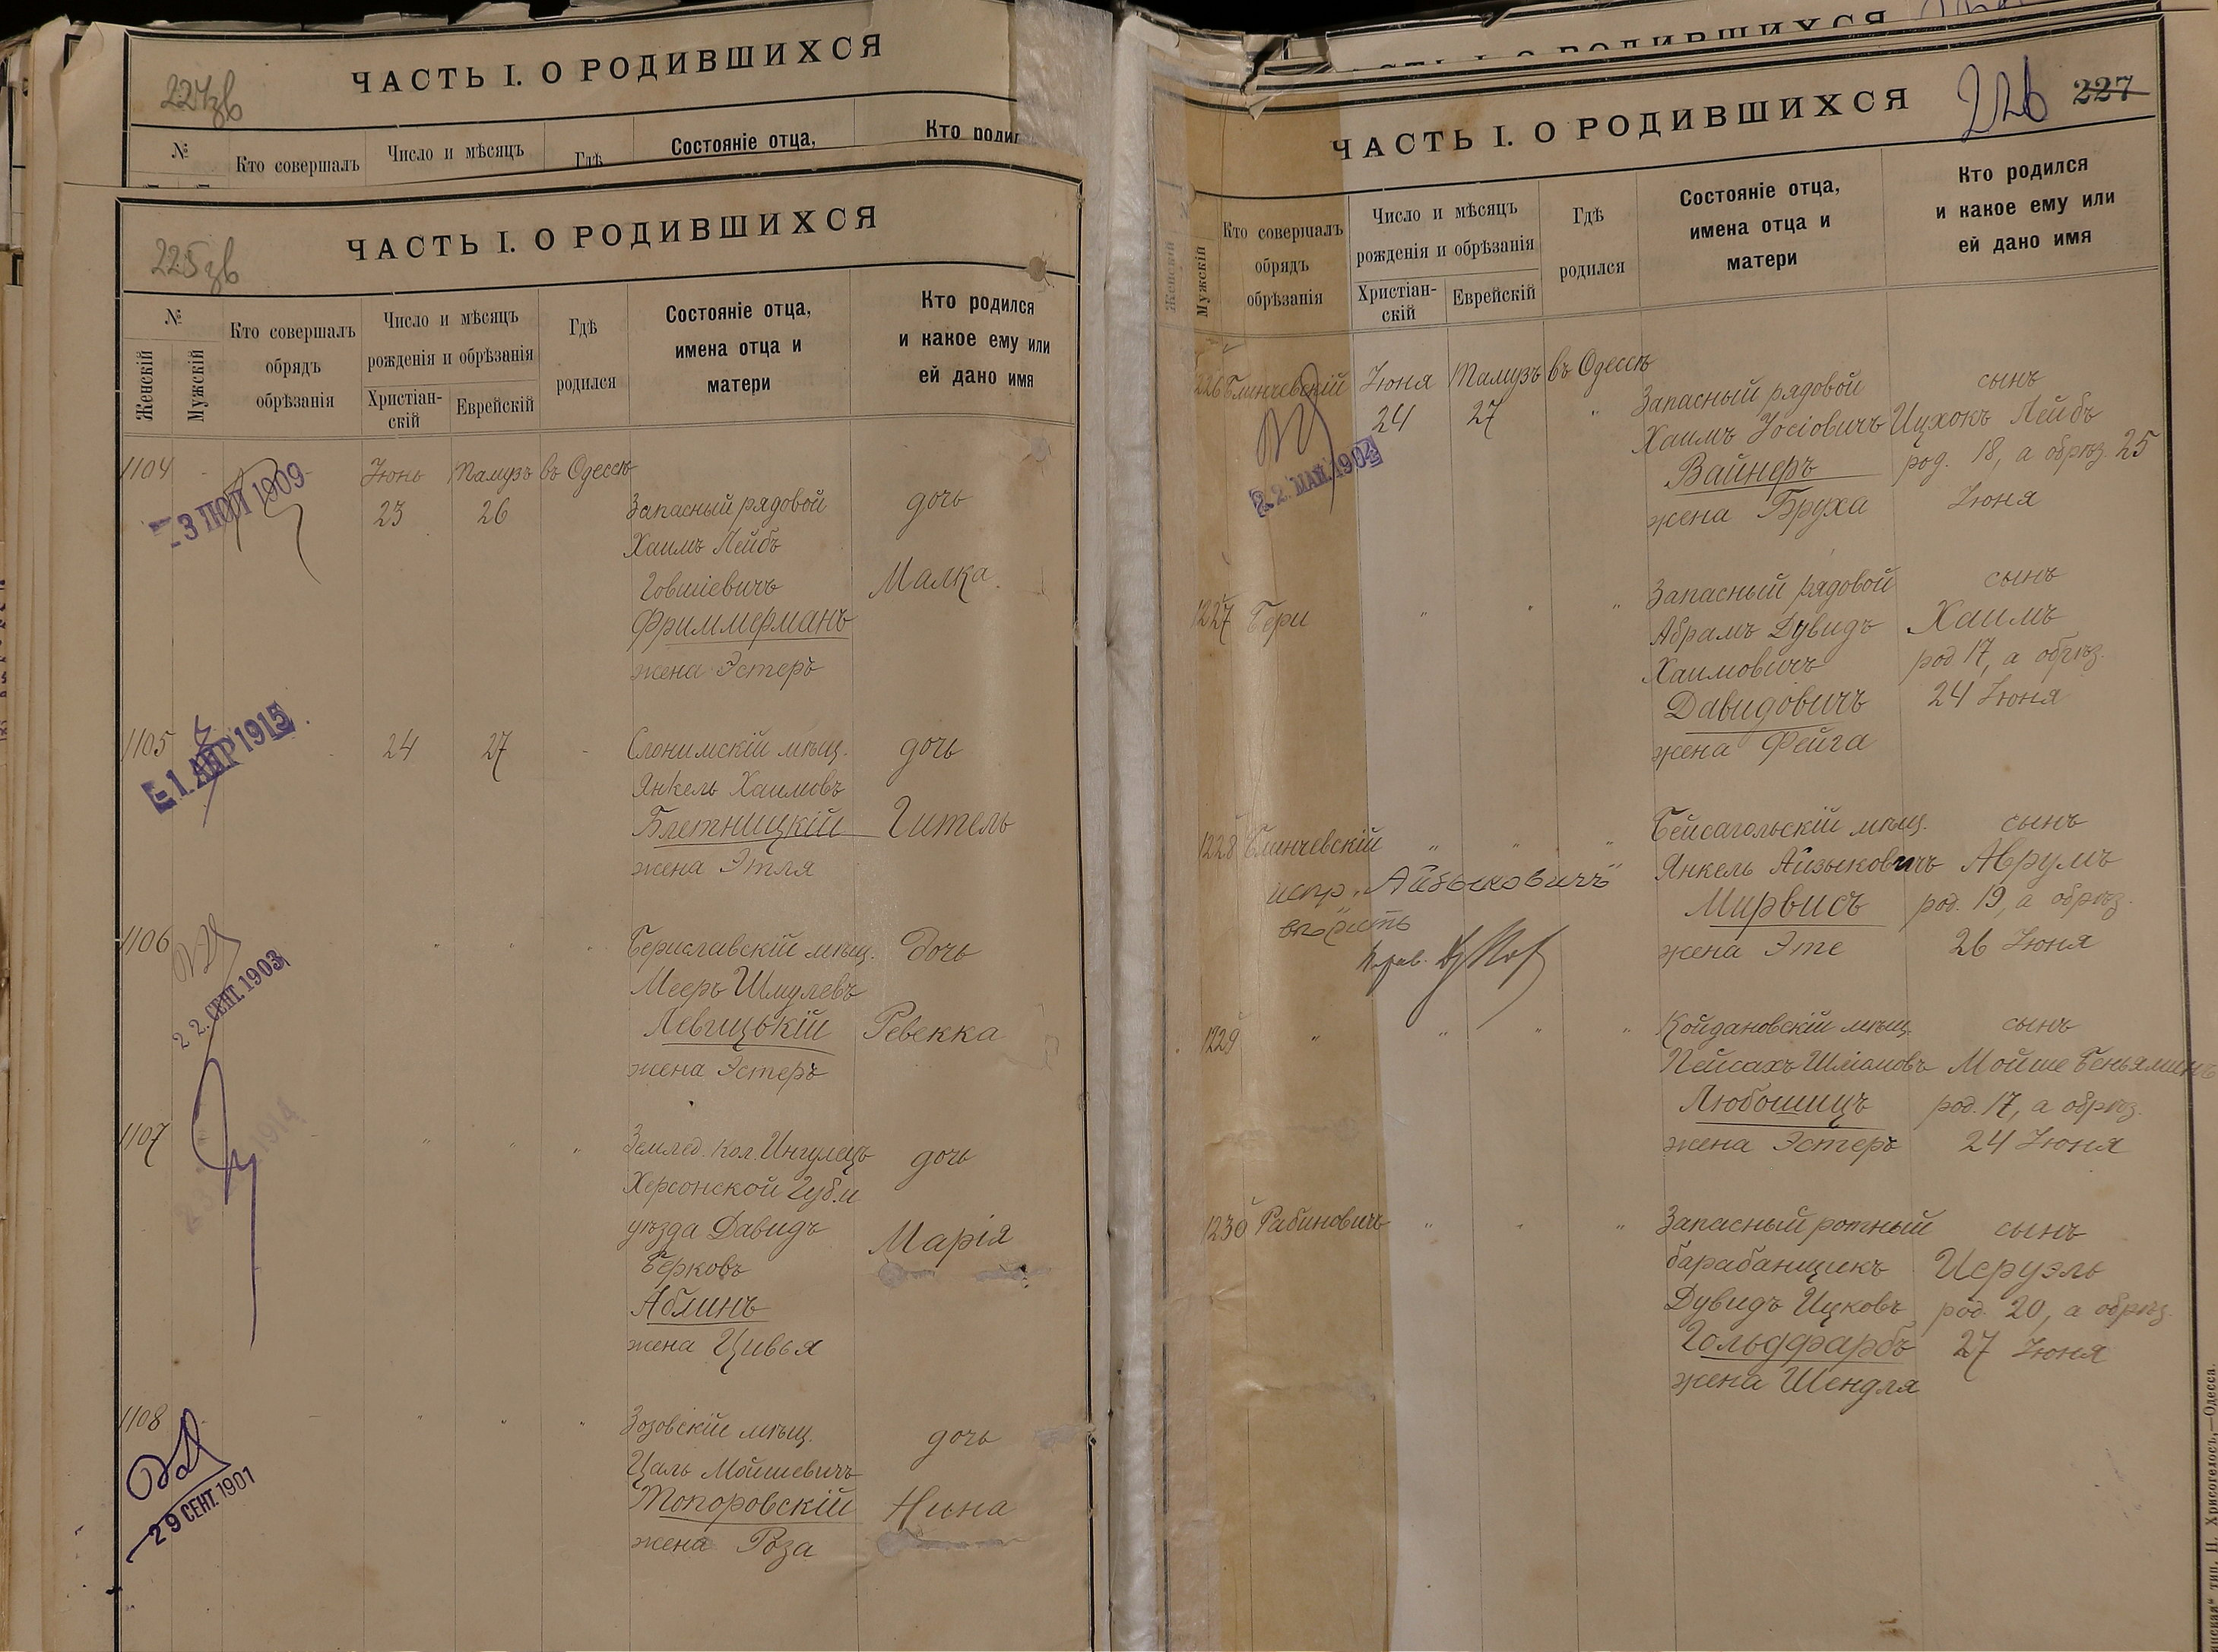 227зв
ЧАСТЬ I. О РОДИВШИХСЯ
№
Кто совершалъ
Число и мѣсяцъ
Гдѣ
Состояніе отца,
Кто родил
225зв
ЧАСТЬ I. О РОДИВШИХСЯ
№
Женскій
Мужскій
Кто совершалъ
обрядъ
обрѣзанія
Число и мѣсяцъ
рожденія и обрѣзанія
Христіан-
скій
Еврейскій
Гдѣ
родился
Состояніе отца,
имена отца и
матери
Кто родился
и какое ему или
ей дано имя
1104 Іюнь Тамузъ въ Одессѣ
23 26 Запасный рядовой дочь
Хаимъ Лейбъ
Іовшіевичъ Малка
Фриммерманъ
жена Эстеръ
1909
1105 24 27 Слонимскій мѣщ. дочь
Янкель Хаимовъ
Блетницкій Гитель
жена Этля
1. АПР 1915
1106 " " " Бериславскій мѣщ. дочь
Мееръ Шмулевъ
Левицькій Ревекка
жена Эстеръ
22. СЕНТ. 1903
1107 " " " Землед. кол. Ингулецъ дочь
Херсонской губ. и
уѣзда Давидъ Марія
Берковъ
Аблинъ
жена Цивья
1914
1108 " " " Зозовскій мѣщ. дочь
Цаль Мойшевичъ
Топоровскій Нина
жена Роза
29 СЕНТ. 1901
ЧАСТЬ I. О РОДИВШИХСЯ
226 227
Женскій
Мужскій
Кто совершалъ
обрядъ
обрѣзанія
Число и мѣсяцъ
рожденія и обрѣзанія
Христіан-
скій
Еврейскій
Гдѣ
родился
Состояніе отца,
имена отца и
матери
Кто родился
и какое ему или
ей дано имя
226 Блинчевскій Іюня Тамузъ въ Одессѣ
24 27 " Запасный рядовой сынъ
Хаимъ Іосіовичъ Ицхокъ Лейбъ
Вайнеръ род. 18, а обрѣз. 25
жена Бруха Іюня
22. МАЙ. 1904
1227 Бери " " " Запасный рядовой сынъ
Абрамъ Дувидъ Хаимъ
Хаимовичъ род 17, а обрѣз.
Давидовичъ 24 Іюня
жена Фейга
1228 Блинчевскій " " " Бейсагольскій мѣщ. сынъ
Янкель Айзыковичъ Аврумъ
испр. „Айзыковичъ"
Мирвисъ род. 19, а обрѣз.
жена Эте 26 Іюня
1229 " " " " Койдановскій мѣщ. сынъ
Пейсахъ Шліомовъ Мойше Беньяминъ
Любошицъ род. 17, а обрѣз.
жена Эстеръ 24 Іюня
1230 Рабиновичъ " " " Запасный ротный сынъ
барабанщикъ Исруэль
Дувидъ Ицковъ род. 20, а обрѣз.
Гольдфарбъ 27 Іюня
жена Шендля
тип. Н. Хрисогелосъ,—Одесса.